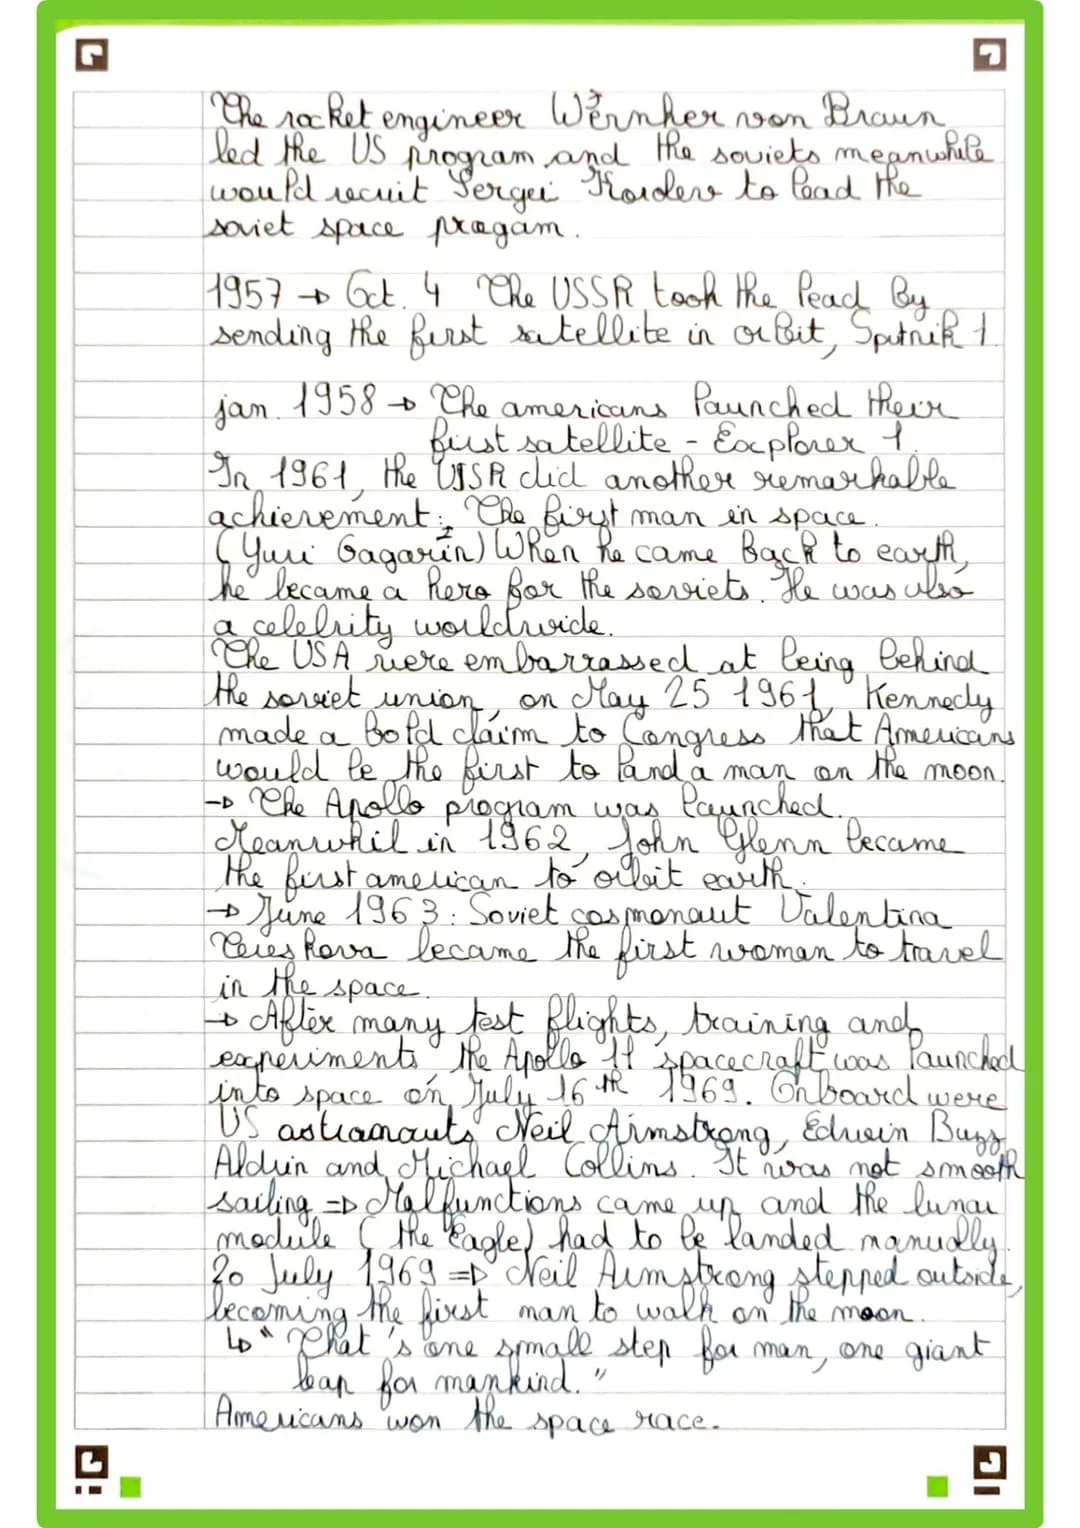 The rocket engineer Wernher von Braun
led the US program and the soviets meanwhile
would recuit Sergei Korolev to lead the
soviet space progam.
1957 → Oct. 4 The USSR took the lead by
sending the first satellite in orbit, Sputnik 1.
jan. 1958 → The americans launched their
first satellite - Explorer 1.
In 1961, the USSR did another remarkable
achievement: The first man in space.
(Yuri Gagarin) When he came back to earth,
he became a hero for the soviets. He was also
a celebrity worldwide.
The USA were embarrassed at being behind
the soviet union, on May 25 1961, Kennedy
made a bold claim to Congress that Americans
would be the first to land a man on the moon.
→ The Apollo program was launched.
Meanwhil in 1962, John Glenn became
the first american to orbit earth.
→ June 1963: Soviet cosmonaut Valentina
Tereskova became the first woman to travel
in the space.
→ After many test flights, training and
experiments, the Apollo 11 spacecraft was launched
into space on July 16th 1969. Onboard were
US astronauts Neil Armstrong, Edwin Buzz
Aldrin and Michael Collins. It was not smooth
sailing ⇒ Malfunctions came up and the lunar
module (the Eagle) had to be landed manually.
20 July 1969 ⇒ Neil Armstrong stepped outside,
becoming the first man to walk on the moon.
↳ "That's one small step for man, one giant
leap for mankind."
Americans won the space race.